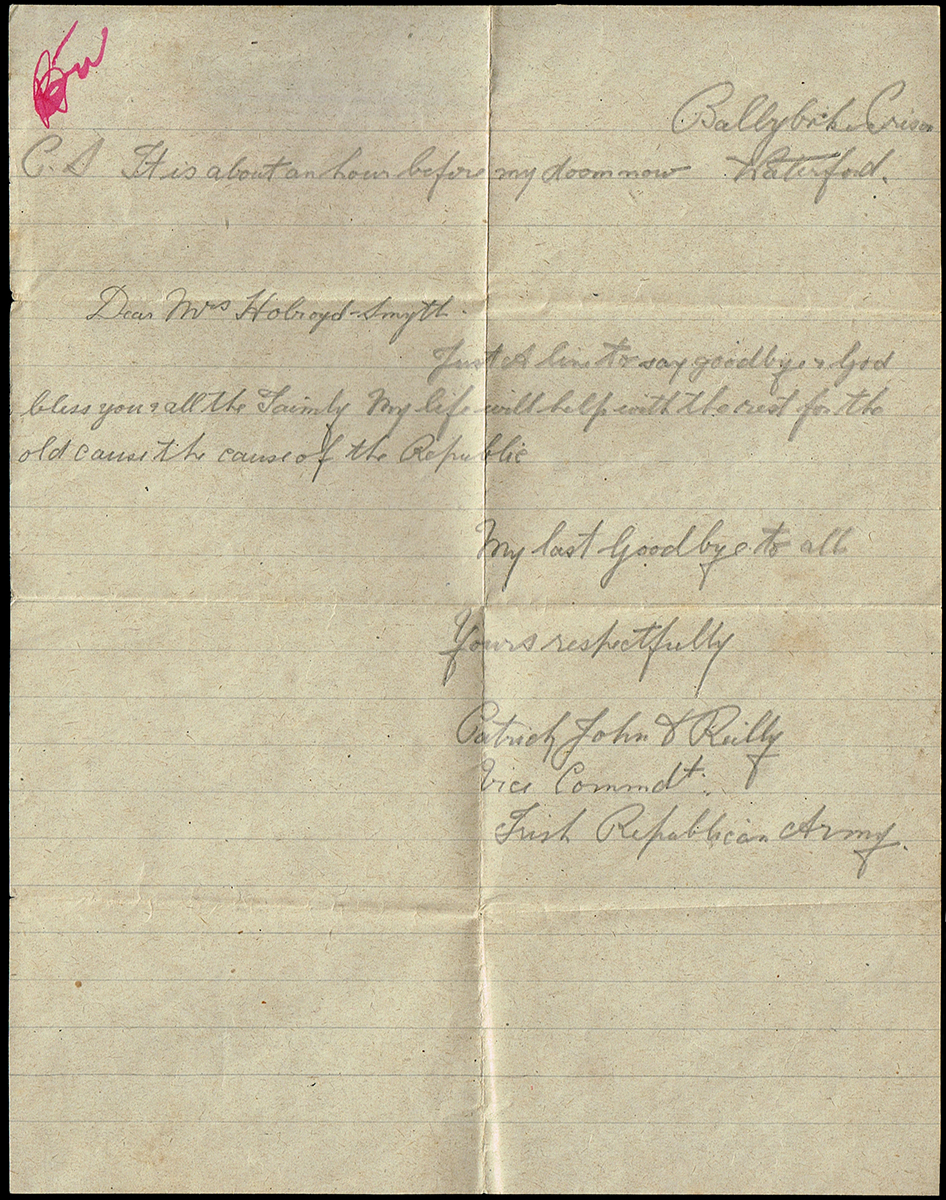 Ballybrick Prison
P. S It is about an hour before my doom now Waterford.
Dear Mrs Holroyd-Smyth.
Just A line to say goodbye & God
bless you & all the Faimly My life will help with the rest for the
old cause the cause of the Republic
My last Goodbye to all
Yours respectfully
Patrick John O Reilly
Vice Commdt.
Irish Republican Army.